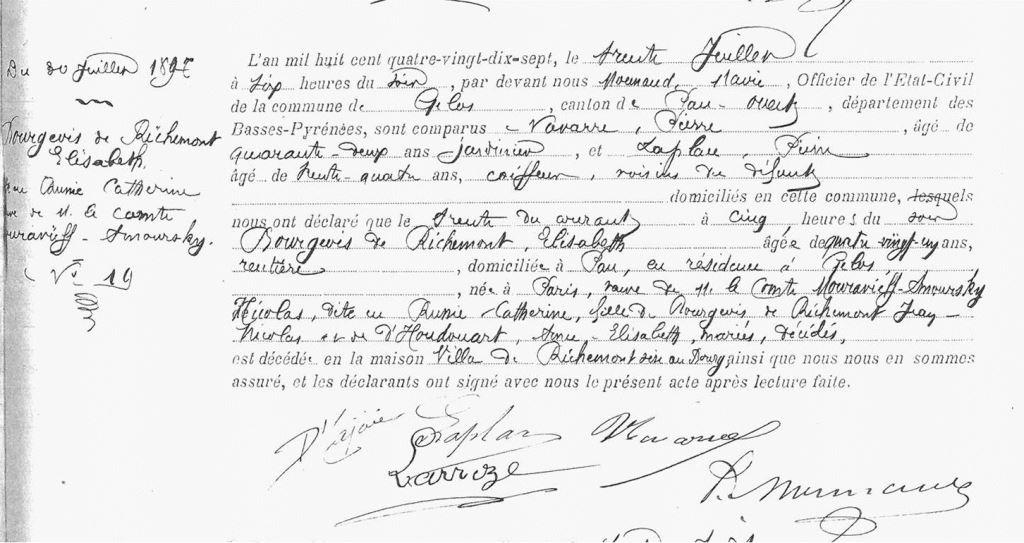 Du 30 Juillet 1897
Bourgeois de Richemont
Elisabeth
Russie Catherine
de M. le Comte
Mouravieff-Amoursky.
N° 19
L'an mil huit cent quatre-vingt-dix-sept, le trente Juillet
à six heures du soir, par devant nous Mournaud, Maire, Officier de l'Etat-Civil
de la commune de Gelos, canton de Pau-ouest, département des
Basses-Pyrénées, sont comparus Navarre, Pierre, âgé de
quarante-deux ans Jardinier, et Laplace, Pierre
âgé de trente quatre ans, coiffeur, voisins du défunt
domiciliés en cette commune, lesquels
nous ont déclaré que le trente du courant à cinq heures du soir
Bourgeois de Richemont, Elisabeth âgée de quatre vingt-un ans,
rentière, domiciliée à Pau, en résidence à Gelos
, née à Paris, veuve de M. le Comte Mouravieff-Amoursky
Nicolas, dite en Russie Catherine, fille de Bourgeois de Richemont Jean-
Nicolas et de D'Houdouart, Anne-Elisabeth, mariés, décédés,
est décédée en la maison Villa de Richemont sise au Bourg ainsi que nous nous en sommes
assuré, et les déclarants ont signé avec nous le présent acte après lecture faite.
Laplace
Larroze